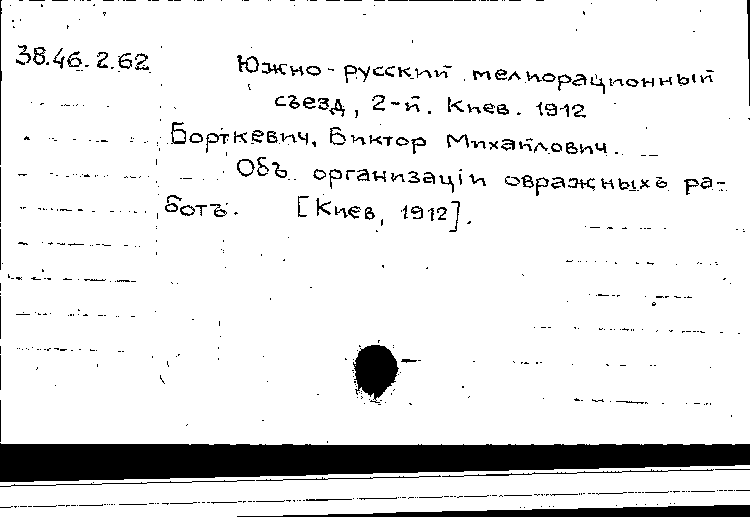 38.46.2.62
Южно-русский мелиорационный
съезд, 2-й. Киев. 1912
Борткевич, Виктор Михайлович.
Объ организаціи овражныхъ ра-
ботъ. [Киев, 1912].